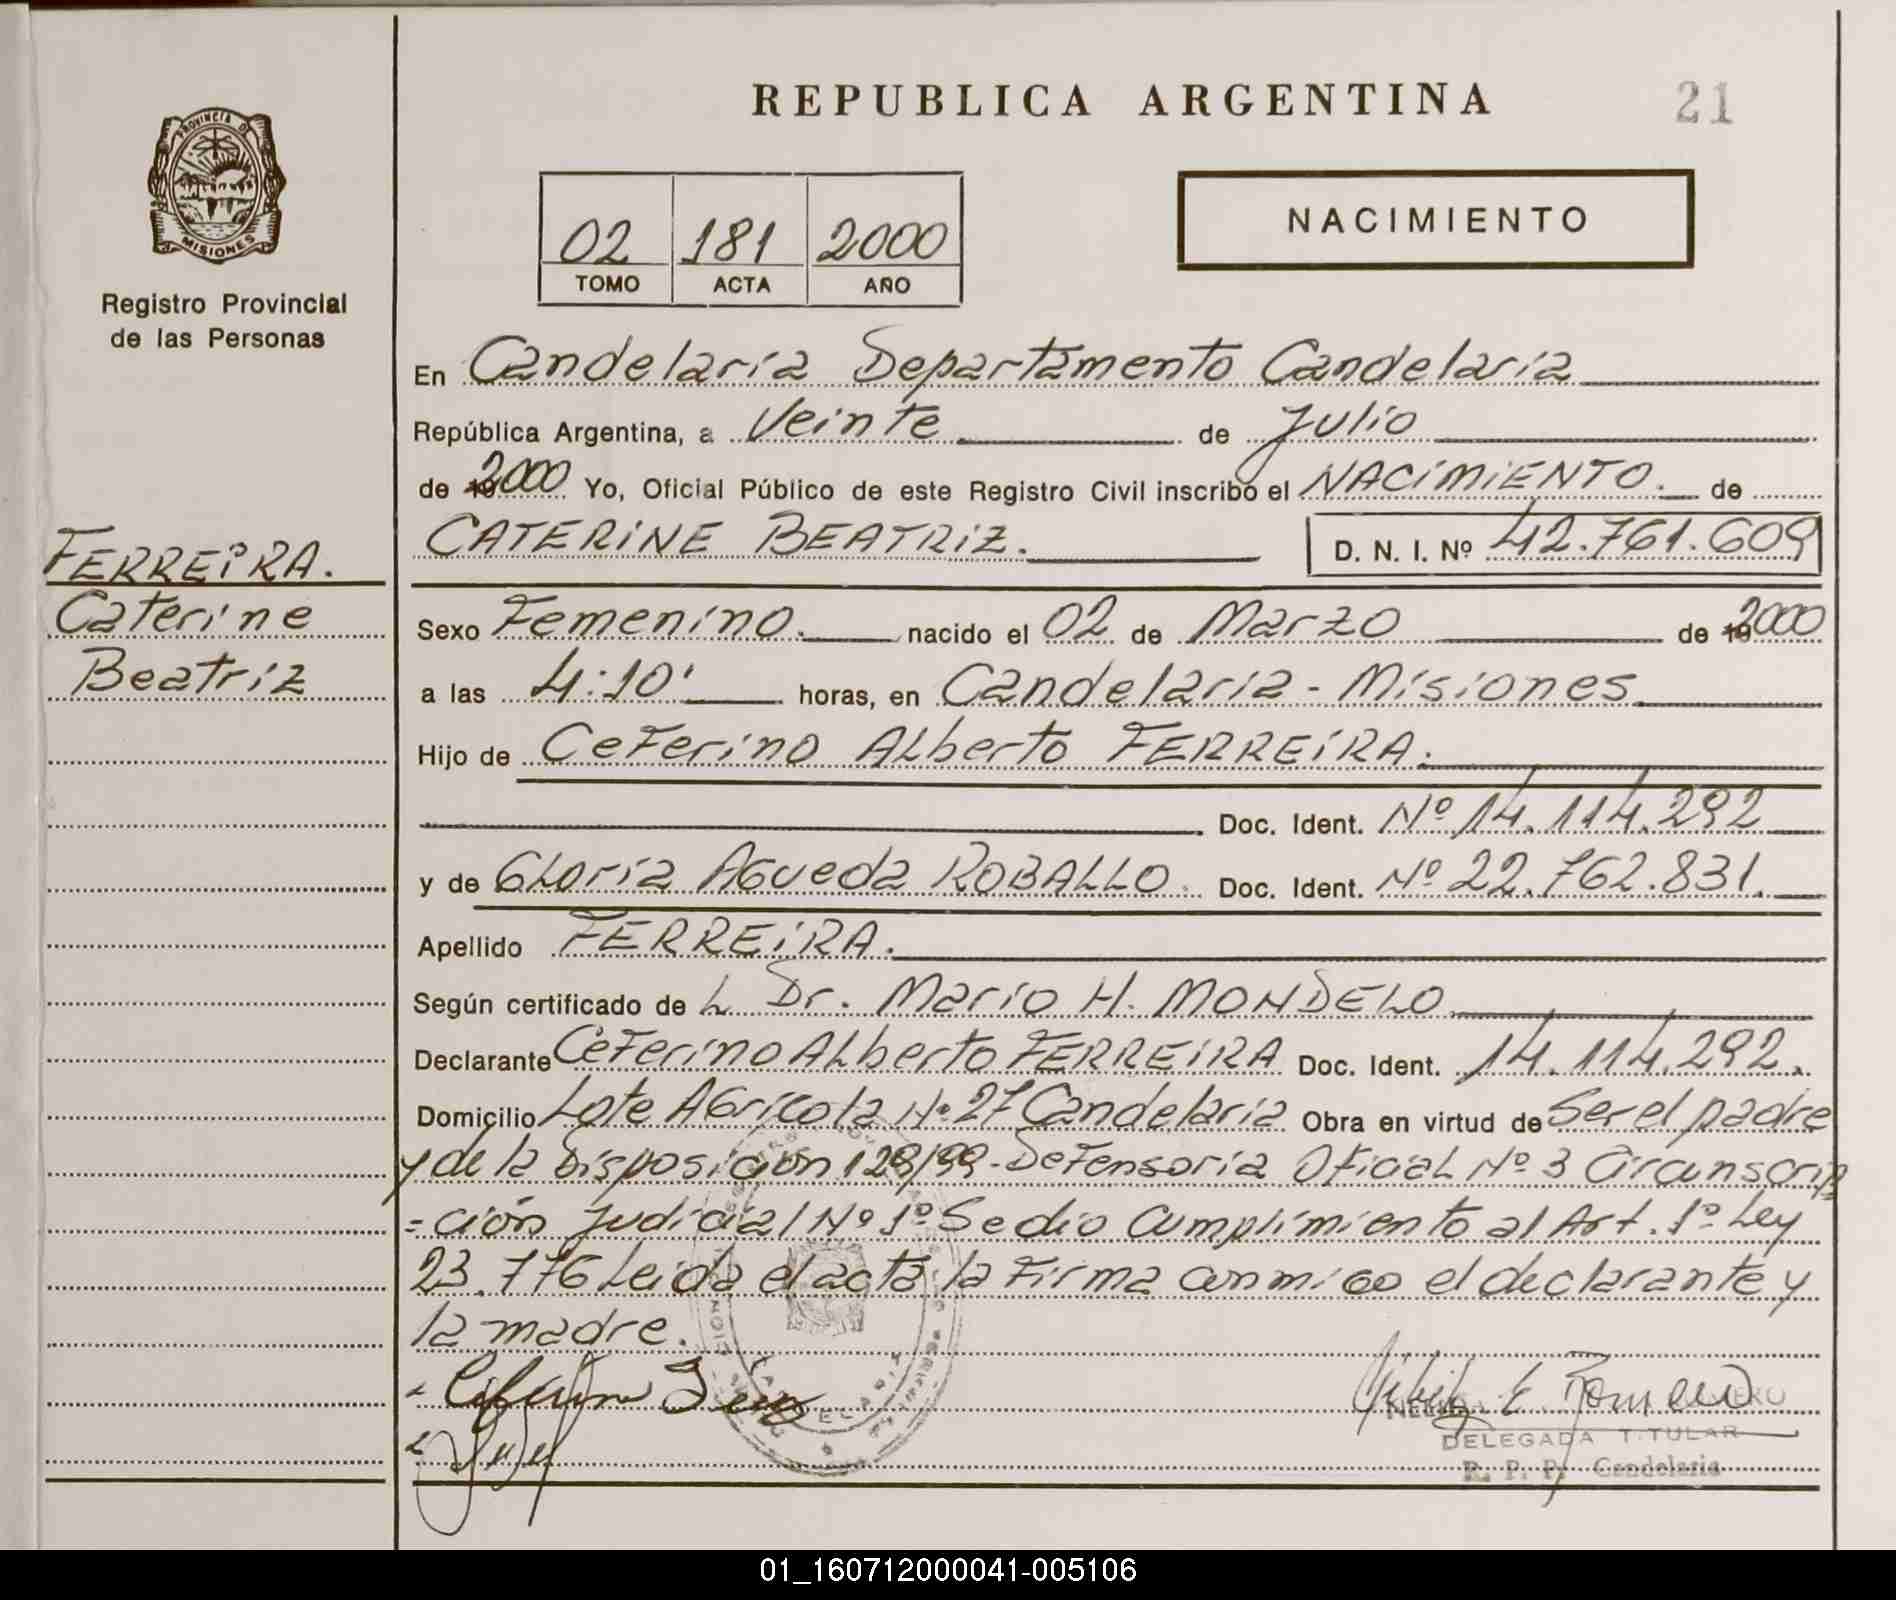 REPUBLICA ARGENTINA
21
PROVINCIA DE
MISIONES
Registro Provincial
de las Personas
02 181 2000
TOMO ACTA AÑO
NACIMIENTO
En Candelaria Departamento Candelaria
República Argentina, a Veinte de Julio
de 2000 Yo, Oficial Público de este Registro Civil inscribo el NACIMIENTO. de
CATERINE BEATRIZ. D. N. I. Nº 42.761.609
FERREIRA.
Caterine
Beatriz
Sexo Femenino. nacido el 02 de Marzo de 2000
a las 4:10' horas, en Candelaria - Misiones
Hijo de Ceferino Alberto FERREIRA.
Doc. Ident. Nº 14.114.292
y de Gloria Agueda ROBALLO. Doc. Ident. Nº 22.762.831.
Apellido FERREIRA.
Según certificado de L Dr. Mario H. MONDELO
Declarante Ceferino Alberto FERREIRA Doc. Ident. 14.114.292.
Domicilio Lote Agricola Nº 27 Candelaria Obra en virtud de Ser el padre
y de la Disposicion 129/99 - Defensoria Oficial Nº 3 Circunscrip
=ción Judicial Nº 1º Se dio Cumplimiento al Art. 1º Ley
23.776 Leida el acta la Firma conmigo el declarante y
la madre.
E. Romero
DELEGADA TITULAR
R. P. P. Candelaria
01_160712000041-005106